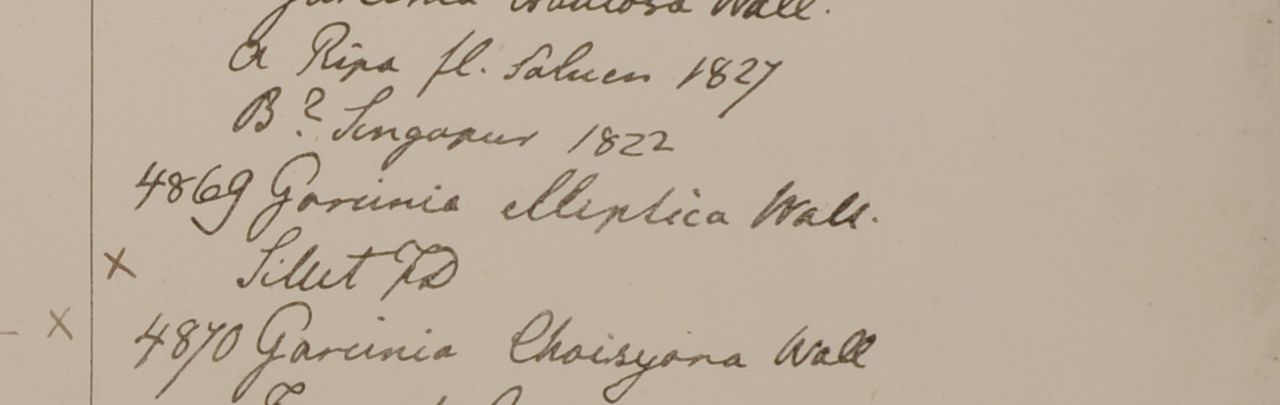 Garcinia Wall.
a Ripa fl. Saluen 1827
B? Singapur 1822
4869 Garcinia elliptica Wall.
x Sillet FD
x 4870 Garcinia Choisyana Wall